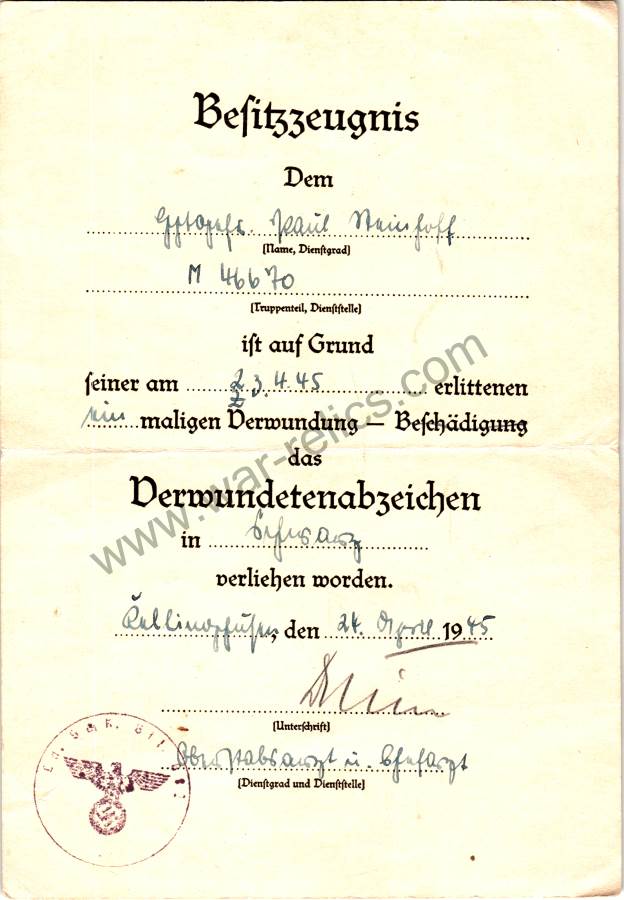 Besitzzeugnis
Dem
Paul Steinhoff
(Name, Dienstgrad)
M 46670
(Truppenteil, Dienststelle)
ist auf Grund
seiner am 23.4.45 erlittenen
ein maligen Verwundung — Beschädigung
das
Verwundetenabzeichen
in Schwarz
verliehen worden.
Kellinghusen, den 24. April 1945
(Unterschrift)
Oberstabsarzt u. Chefarzt
(Dienstgrad und Dienststelle)
www.war-relics.com